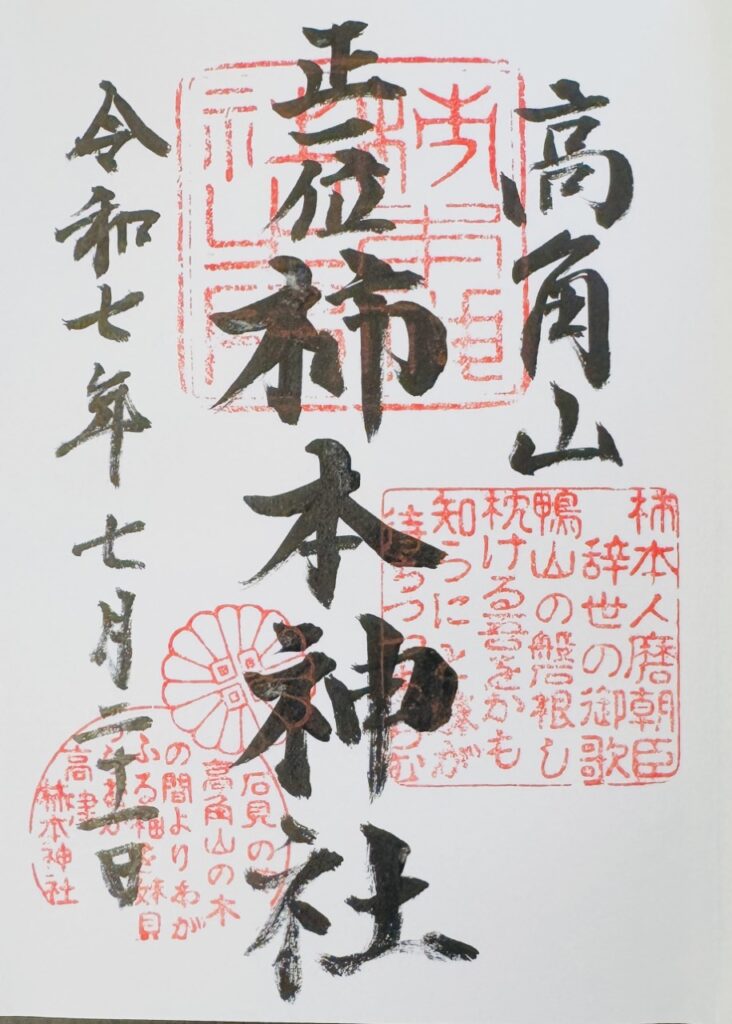 高角山
正一位柿本神社
令和七年七月二十一日
柿本人麿朝臣
辞世の御歌
鴨山の磐根し
枕ける吾をかも
知らに
待ちつ
石見の
高角山の木
の間よりわが
ふる袖を妹見
高津
柿本神社